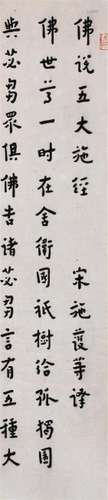 佛說五大施經 宋施護等譯
佛世尊一時在舍衛國祇樹給孤獨園
與苾芻眾俱佛告諸苾芻言有五種大